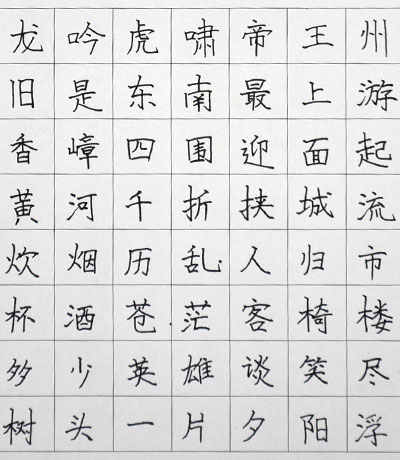 龙吟虎啸帝王州
旧是东南最上游
香嶂四围迎面起
黄河千折挟城流
炊烟历乱人归市
杯酒苍茫客椅楼
多少英雄谈笑尽
树头一片夕阳浮